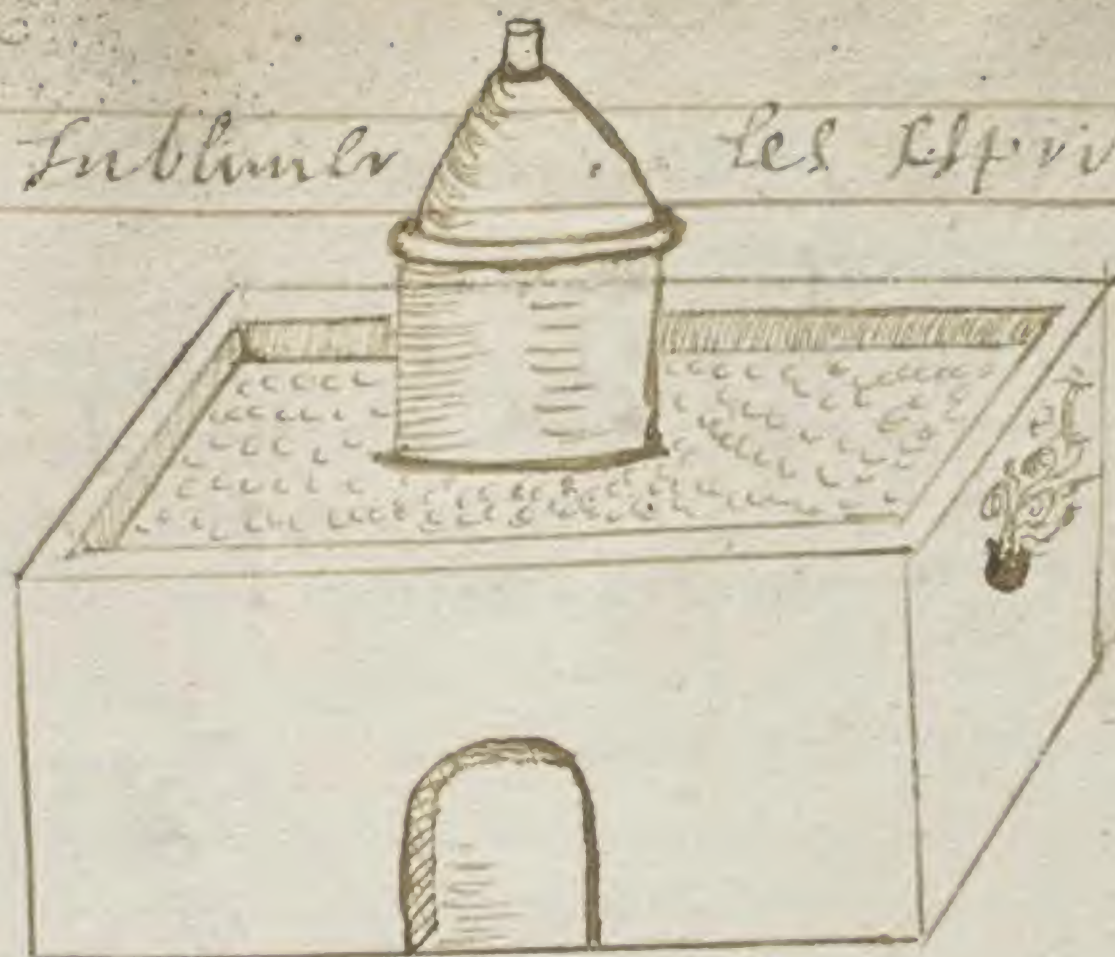 Sublimer les Espri